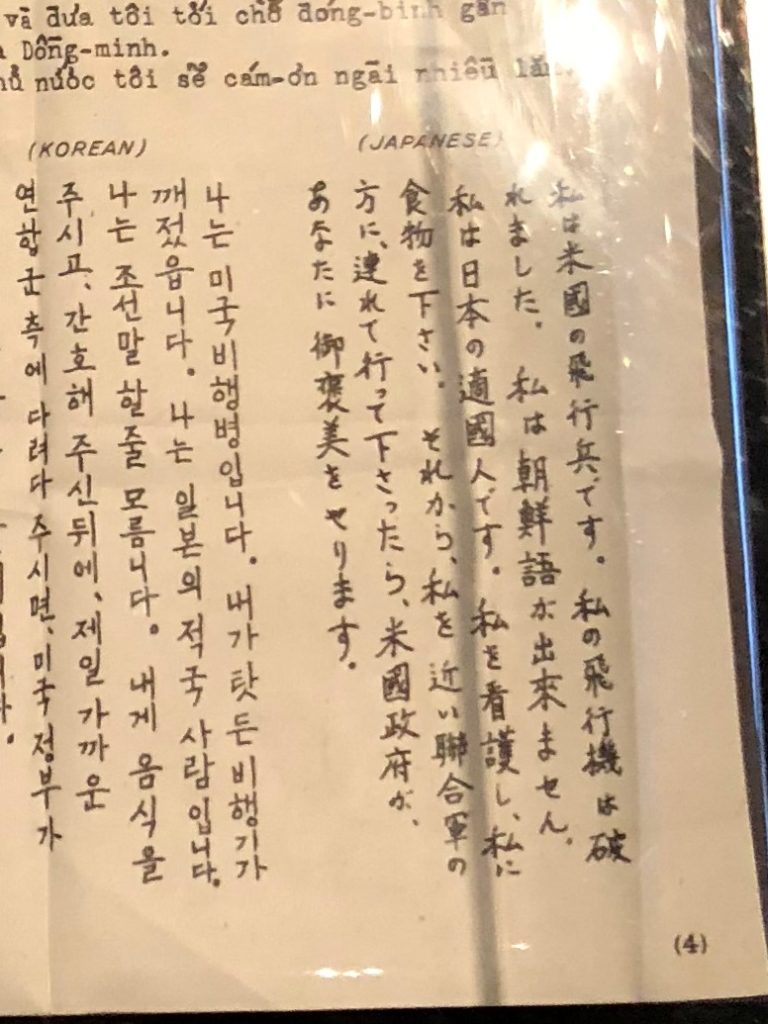 và đưa tôi tới chỗ đóng-binh gần
Đồng-minh.
nước tôi sẽ cám-ơn ngài nhiều lắm.
(KOREAN)
(JAPANESE)
私は米國の飛行兵です。私の飛行機は破
れました。私は朝鮮語が出來ません。
私は日本の適國人です。私を看護し、私に
食物を下さい。それから、私を近い聯合軍の
方に、連れて行って下さったら、米國政府が、
あなたに御褒美をやります。
나는 미국비행병입니다. 내가 탓든 비행기가
깨젔읍니다. 나는 일본의 적국 사람입니다.
나는 조선말 할줄 모릅니다. 내게 음식을
주시고, 간호해 주신 뒤에, 제일 가까운
연합군 측에 다려다 주시면, 미국 정부가
(4)